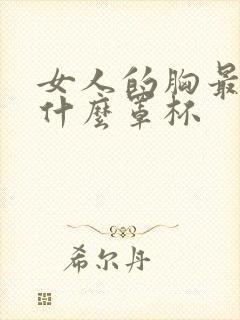 女人的胸最
什麼罩杯
希尔丹